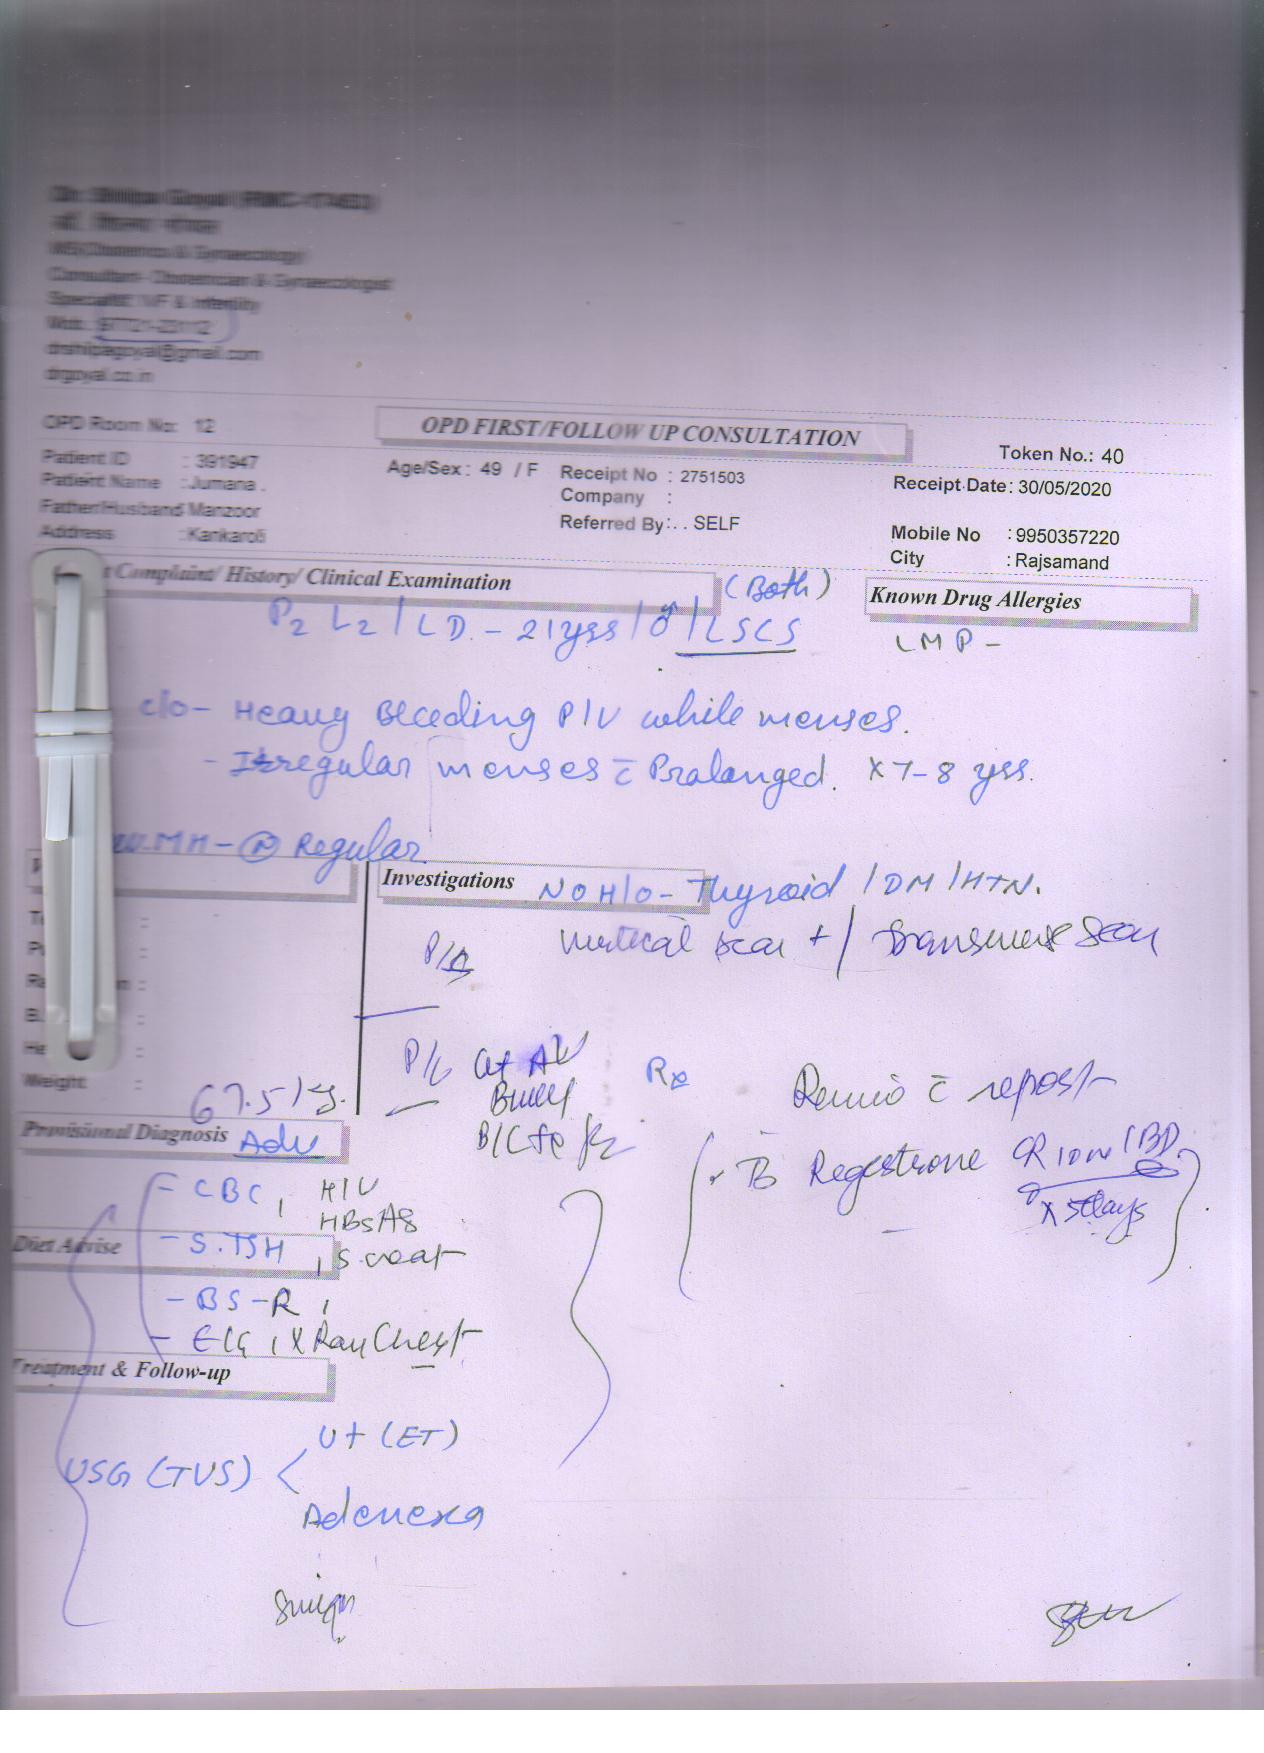 Dr. Shilpa Goyal (RMC-17463)
डॉ. शिल्पा गोयल
MS(Obstetrics & Gynaecology)
Consultant- Obstetrician & Gynaecologist
Specialist IVF & Infertility
Mob.: 97721-23112
drshilpagoyal@gmail.com
drgoyal.co.in
OPD Room No: 12
OPD FIRST/FOLLOW UP CONSULTATION
Token No.: 40
Patient ID : 391947
Age/Sex : 49 / F
Receipt No : 2751503
Receipt Date: 30/05/2020
Patient Name : Jumana .
Company :
Father/Husband Manzoor
Referred By: . . SELF
Mobile No : 9950357220
Address : Kankaroli
City : Rajsamand
Complaint/ History/ Clinical Examination
(Both)
Known Drug Allergies
P2 L2 / LD - 21yrs / ♂ / LSCS
LMP -
c/o - Heavy Bleeding P/V while menses.
- Irregular menses c̄ Prolonged. x 7-8 yrs.
MH - (N) Regular.
Investigations
NO H/O - Thyroid / DM / HTN.
P/A
Vertical scar + / Transverse Scar
Weight :
67.5 kg.
P/V Ut AV
Bulky
B/L fx
Rx
Review c̄ report
Provisional Diagnosis
Adv
- CBC, HIV
HBsAg
T Regestrone CR 10mg / BD
x 5 days
Diet Advise
- S.TSH, S. creat
- BS-R,
- ECG, X Ray Chest
Treatment & Follow-up
USG (TVS) < Ut (ET)
Adenexa